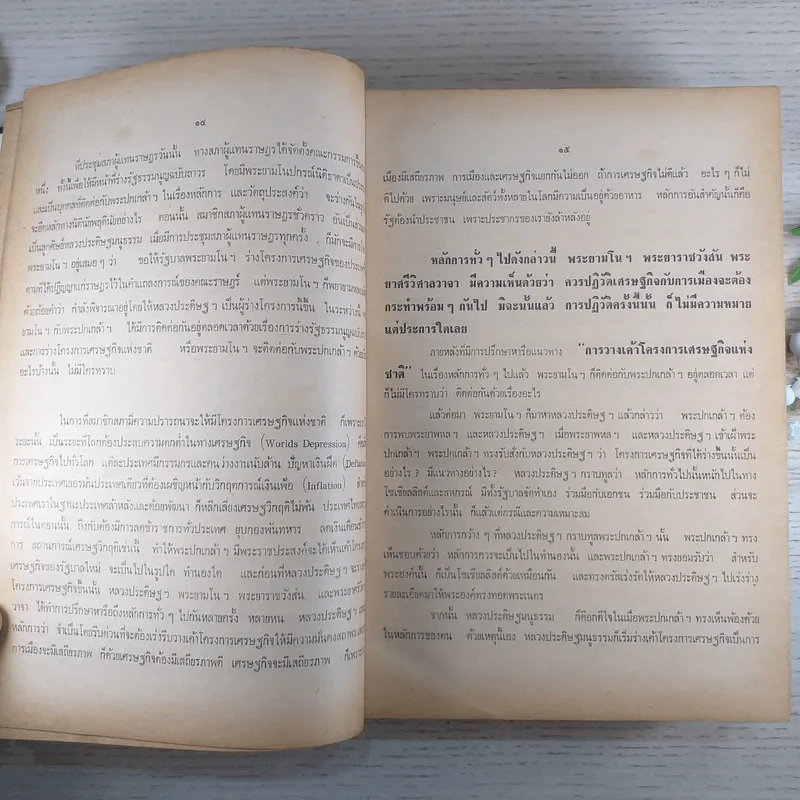 ๑๔
ที่ประชุมสภาผู้แทนราษฎรวันนั้น ทางสภาผู้แทนราษฎรได้จัดตั้งคณะกรรมการขึ้น
หนึ่ง ทั้งนี้เพื่อให้มีหน้าที่ร่างรัฐธรรมนูญฉบับถาวร โดยมีพระยามโนปกรณ์นิติธาดาเป็นประธาน
และเป็นบุคคลที่ติดต่อกับพระปกเกล้า ฯ ในเรื่องหลักการ และวัตถุประสงค์ว่า จะร่างกันใน
จะยึดหลักทางมิตินัยพฤตินัยอย่างไร ตอนนั้น สมาชิกสภาผู้แทนราษฎรชั่วคราว อันเป็นส่วน
เป็นลูกศิษย์หลวงประดิษฐมนูธรรม เมื่อมีการประชุมสภาผู้แทนราษฎรทุกครั้ง ก็มักจะมีการ
พระยามโน ฯ อยู่เสมอ ๆ ว่า ขอให้รัฐบาลพระยามโน ฯ ร่างโครงการเศรษฐกิจของประเทศ
ตามที่ได้ปฏิญาณแก่ราษฎรไว้ในคำแถลงการณ์ของคณะราษฎร์ แต่พระยามโน ฯ ก็พยายาม
ด้วยถ้อยคำว่า กำลังพิจารณาอยู่โดยให้หลวงประดิษฐ ฯ เป็นผู้ร่างโครงการนี้ขึ้น ในระหว่างนี้
ยามโน ฯ กับพระปกเกล้า ฯ ได้มีการติดต่อกันอยู่ตลอดเวลาด้วยเรื่องการร่างรัฐธรรมนูญฉบับ
และการร่างโครงการเศรษฐกิจแห่งชาติ หรือพระยามโน ฯ จะติดต่อกับพระปกเกล้า ฯ ด้วย
อะไรบ้างนั้น ไม่มีใครทราบ
ในการที่สมาชิกสภามีความปรารถนาจะให้มีโครงการเศรษฐกิจแห่งชาติ ก็เพราะ
ระยะนั้น เป็นระยะที่โลกต้องประสบความตกต่ำในทางเศรษฐกิจ (Worlds Depression)
การเศรษฐกิจไปทั่วโลก แต่ละประเทศมีกรรมกรและคนว่างงานนับล้าน ปัญหาเงินฝืด
เว้นจากประเทศเยอรมันประเทศเดียวที่ต้องเผชิญหน้ากับวิกฤตการณ์เงินเฟ้อ (Inflation)
ประเทศเราในฐานะประเทศล้าหลังและด้อยพัฒนา ก็หลีกเลี่ยงเศรษฐวิกฤติไม่พ้น
การณ์ในตอนนั้น ถึงกับต้องมีการลดข้าราชการทั่วประเทศ ยุบกองพันทหาร ลดเงินเดือน
การ สถานการณ์เศรษฐวิกฤติเช่นนี้ ทำให้พระปกเกล้า ฯ มีพระราชประสงค์จะได้เห็นเค้าโครง
เศรษฐกิจของรัฐบาลใหม่ จะเป็นไปในรูปใด ทำนองใด และก่อนที่หลวงประดิษฐ ฯ จะ
โครงการเศรษฐกิจขึ้นนั้น หลวงประดิษฐ ฯ พระยามโน ฯ พระยาราชวังสัน และพระยาศรี
วาจา ได้ทำการปรึกษาหารือถึงหลักการทั่ว ๆ ไปกันหลายครั้ง หลายหน หลวงประดิษฐ ฯ
หลักการว่า จำเป็นโดยรีบด่วนที่จะต้องเร่งรีบวางเค้าโครงการเศรษฐกิจให้มีความมั่นคง
การเมืองจะมีเสถียรภาพ ก็ด้วยเศรษฐกิจต้องมีเสถียรภาพดี เศรษฐกิจจะมีเสถียรภาพ
๑๕
เมืองมีเสถียรภาพ การเมืองและเศรษฐกิจแยกกันไม่ออก ถ้าการเศรษฐกิจไม่ดีแล้ว อะไร ๆ ก็ไม่
ดีไปด้วย เพราะมนุษย์และสัตว์ทั้งหลายในโลกมีความเป็นอยู่ด้วยอาหาร หลักการอันสำคัญนั้นก็คือ
รัฐต้องนำประชาชน เพราะประชากรของเรายังล้าหลังอยู่
หลักการทั่ว ๆ ไปดังกล่าวนี้ พระยามโน ฯ พระยาราชวังสัน พระ
ยาศรีวิศาลวาจา มีความเห็นด้วยว่า ควรปฏิวัติเศรษฐกิจกับการเมืองจะต้อง
กระทำพร้อม ๆ กันไป มิฉะนั้นแล้ว การปฏิวัติครั้งนี้นั้น ก็ไม่มีความหมาย
แต่ประการใดเลย
ภายหลังที่มีการปรึกษาหารือแนวทาง “การวางเค้าโครงการเศรษฐกิจแห่ง
ชาติ” ในเรื่องหลักการทั่ว ๆ ไปแล้ว พระยามโน ฯ ก็ติดต่อกับพระปกเกล้า ฯ อยู่ตลอดเวลา แต่
ก็ไม่มีใครทราบว่า ติดต่อกันด้วยเรื่องอะไร
แล้วต่อมา พระยามโน ฯ ก็มาหาหลวงประดิษฐ ฯ แล้วกล่าวว่า พระปกเกล้า ฯ ต้อง
การพบพระยาพหล ฯ และหลวงประดิษฐ ฯ เมื่อพระยาพหล ฯ และหลวงประดิษฐ ฯ เข้าเฝ้าพระ
ปกเกล้า ฯ พระปกเกล้า ฯ ทรงรับสั่งกับหลวงประดิษฐ ฯ ว่า โครงการเศรษฐกิจที่ให้ร่างขึ้นนั้นเป็น
อย่างไร ? มีแนวทางอย่างไร ? หลวงประดิษฐ ฯ กราบทูลว่า หลักการทั่วไปนั้นหนักไปในทาง
โซเชียลลิสต์และสหกรณ์ มีทั้งรัฐบาลจัดทำเอง ร่วมมือกับเอกชน ร่วมมือกับประชาชน ส่วนจะ
ดำเนินการอย่างไรนั้น ก็แล้วแต่กรณีและความเหมาะสม
หลักการกว้าง ๆ ที่หลวงประดิษฐ ฯ กราบทูลพระปกเกล้า ฯ นั้น พระปกเกล้า ฯ ทรง
เห็นชอบด้วยว่า หลักการควรจะเป็นไปในทำนองนั้น และพระปกเกล้า ฯ ทรงยอมรับว่า สำหรับ
พระองค์นั้น ก็เป็นโซเชียลลิสต์ด้วยเหมือนกัน และทรงตรัสเร่งรัดให้หลวงประดิษฐ ฯ ไปเร่งร่าง
รายละเอียดมาให้พระองค์ทรงทอดพระเนตร
จากนั้น หลวงประดิษฐมนูธรรม ก็ดีอกดีใจในเมื่อพระปกเกล้า ฯ ทรงเห็นพ้องด้วย
ในหลักการของตน ด้วยเหตุนี้เอง หลวงประดิษฐมนูธรรมก็เริ่มร่างเค้าโครงการเศรษฐกิจเป็นการ